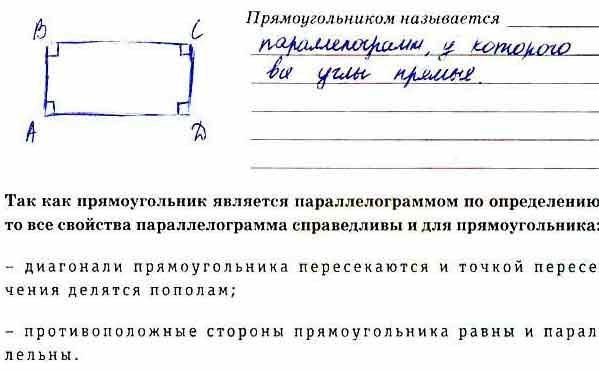 Прямоугольником называется
B C
параллелограмм, у которого
все углы прямые.
A D
Так как прямоугольник является параллелограммом по определению
то все свойства параллелограмма справедливы и для прямоугольника:
– диагонали прямоугольника пересекаются и точкой пересе
чения делятся пополам;
– противоположные стороны прямоугольника равны и парал
лельны.